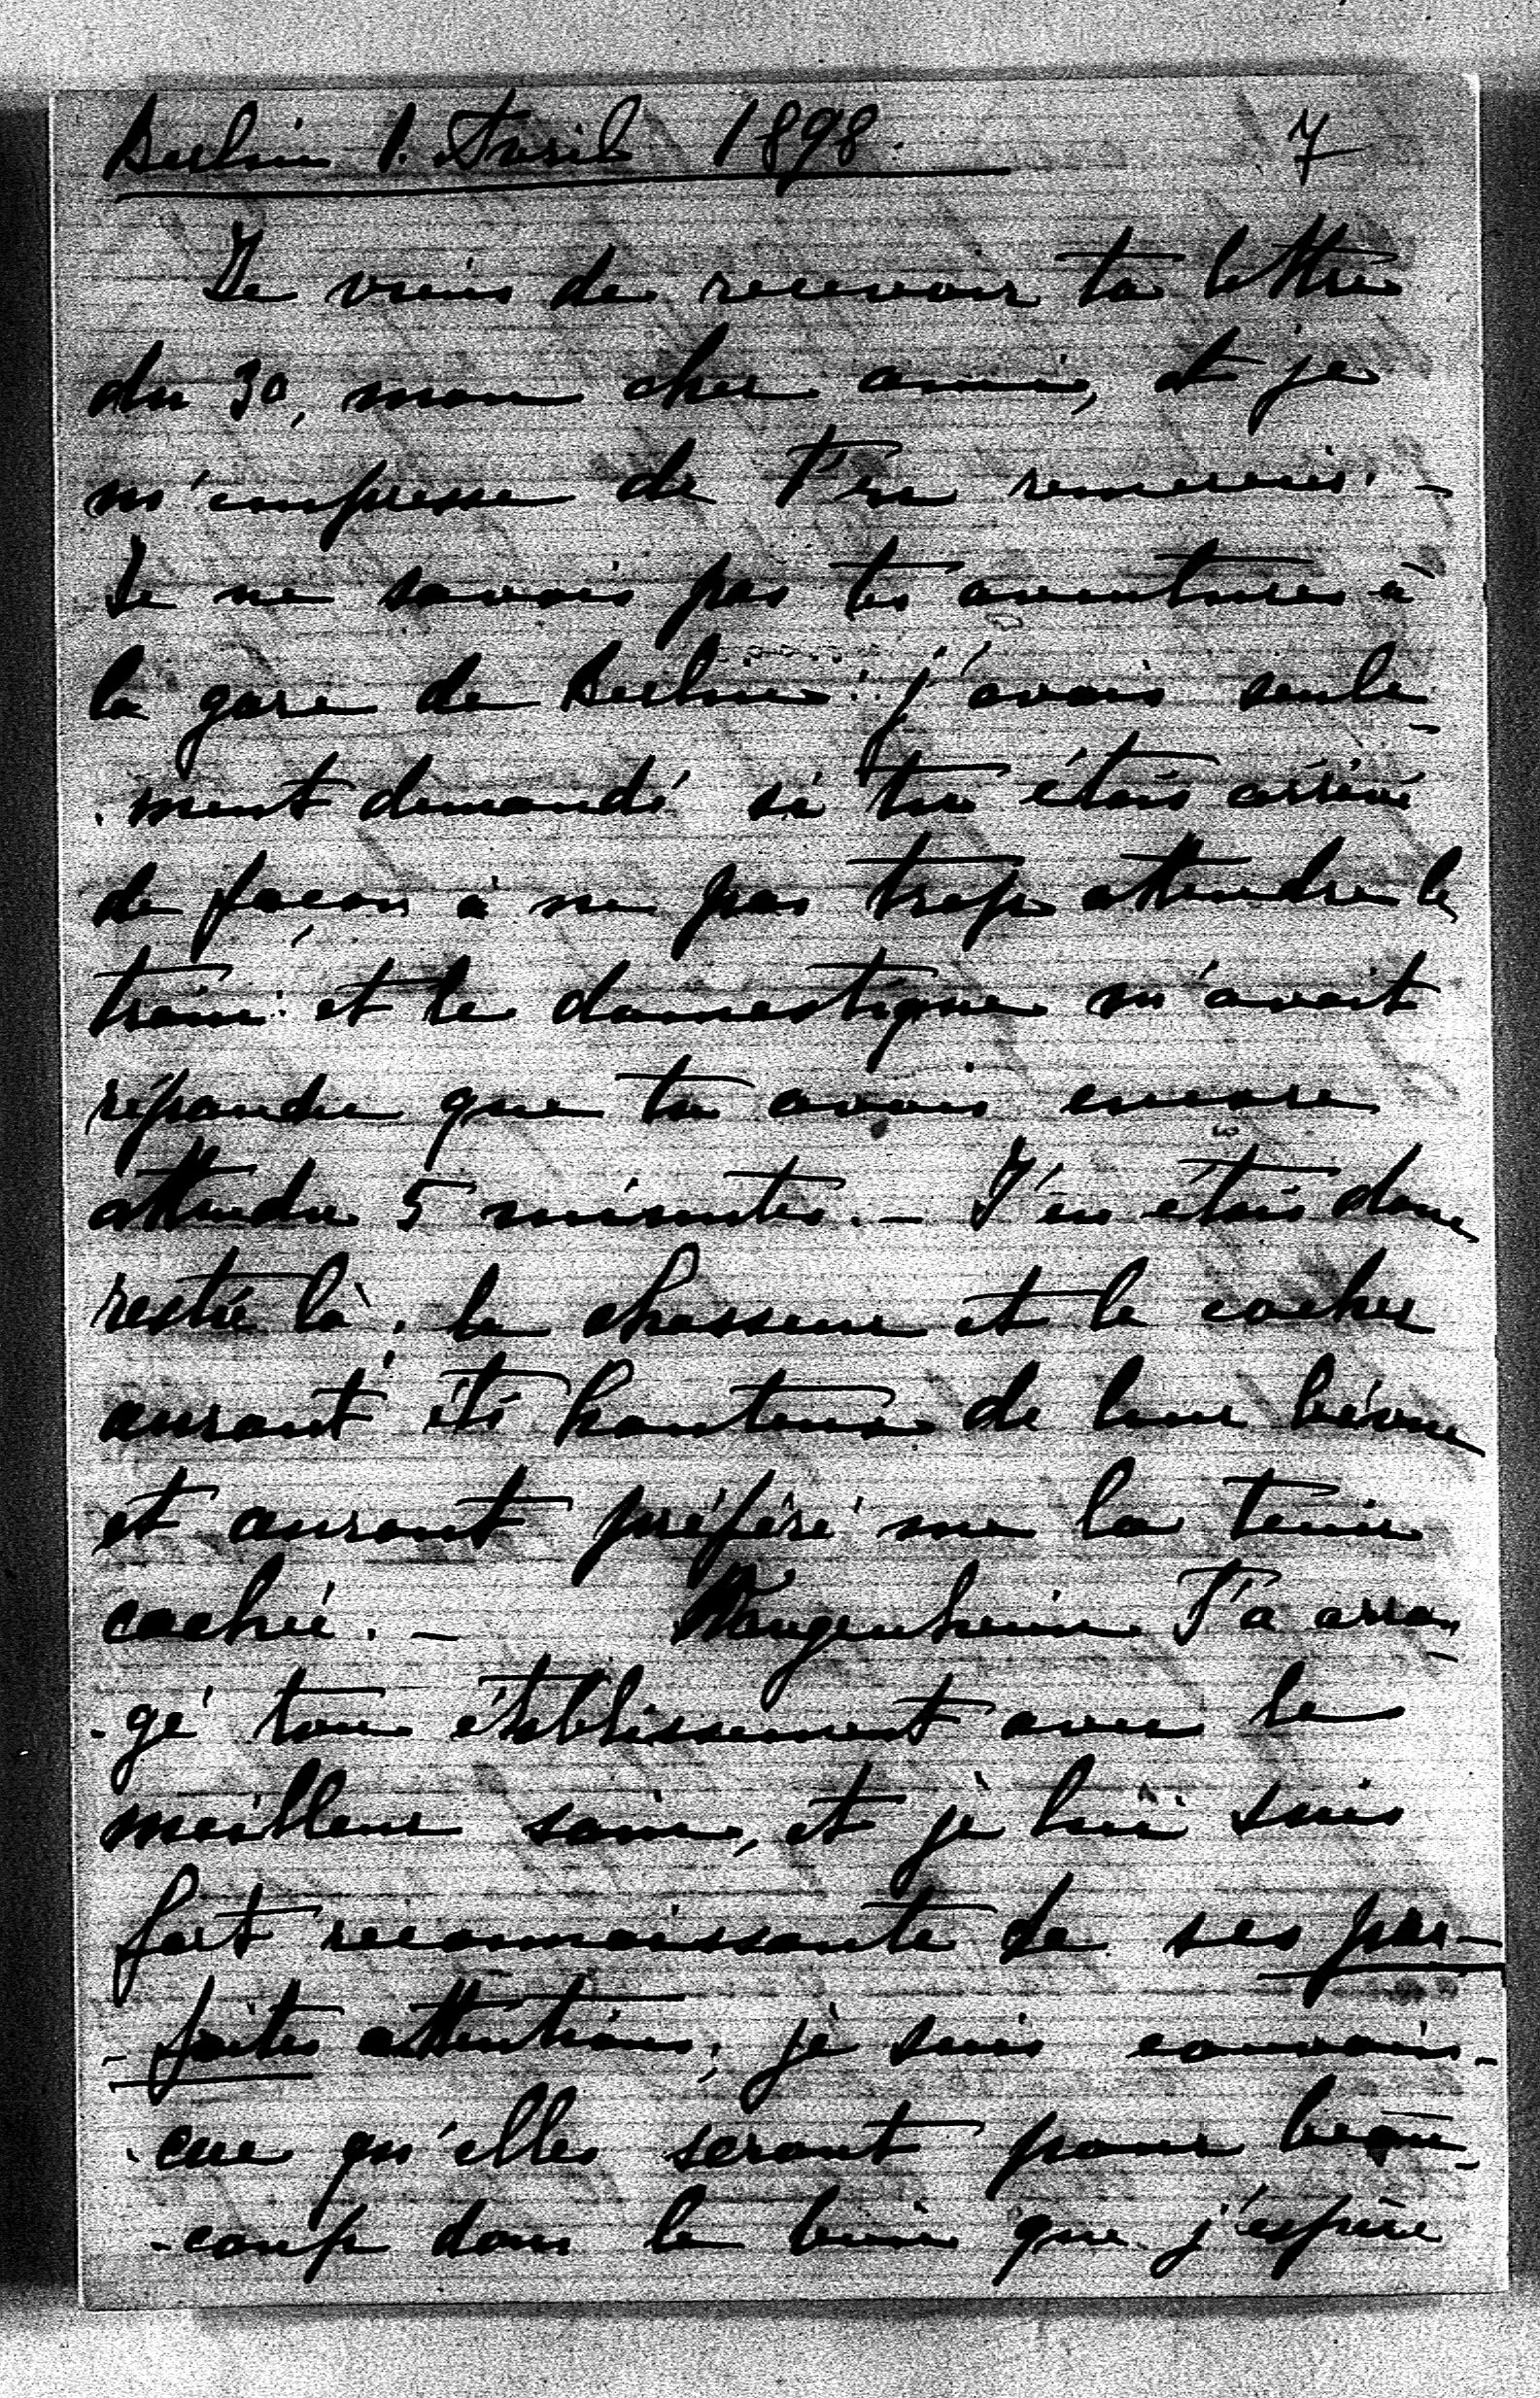 Berlin 1. Avril 1898. 7
Je viens de recevoir ta lettre
du 30, mon cher ami, et je
m'empresse de t'en remercier. -
Je ne savais pas tes aventures à
la gare de Berlin: j'avais seule-
-ment demandé si tu étais arrivé
de façon à ne pas trop attendre le
train: et le domestique m'avait
répondu que tu avais encore
attendu 5 minutes. - J'en étais donc
restée là; le chasseur et le cocher
auront été honteux de leur bévue
et auront préféré me la tenir
cachée. - Wangenheim t'a arran-
-gé ton établissement avec le
meilleur soin, et je lui suis
fort reconnaissante de ses par-
-faites attentions; je suis convain-
-cue qu'elles seront pour beau-
-coup dans le bien que j'espère